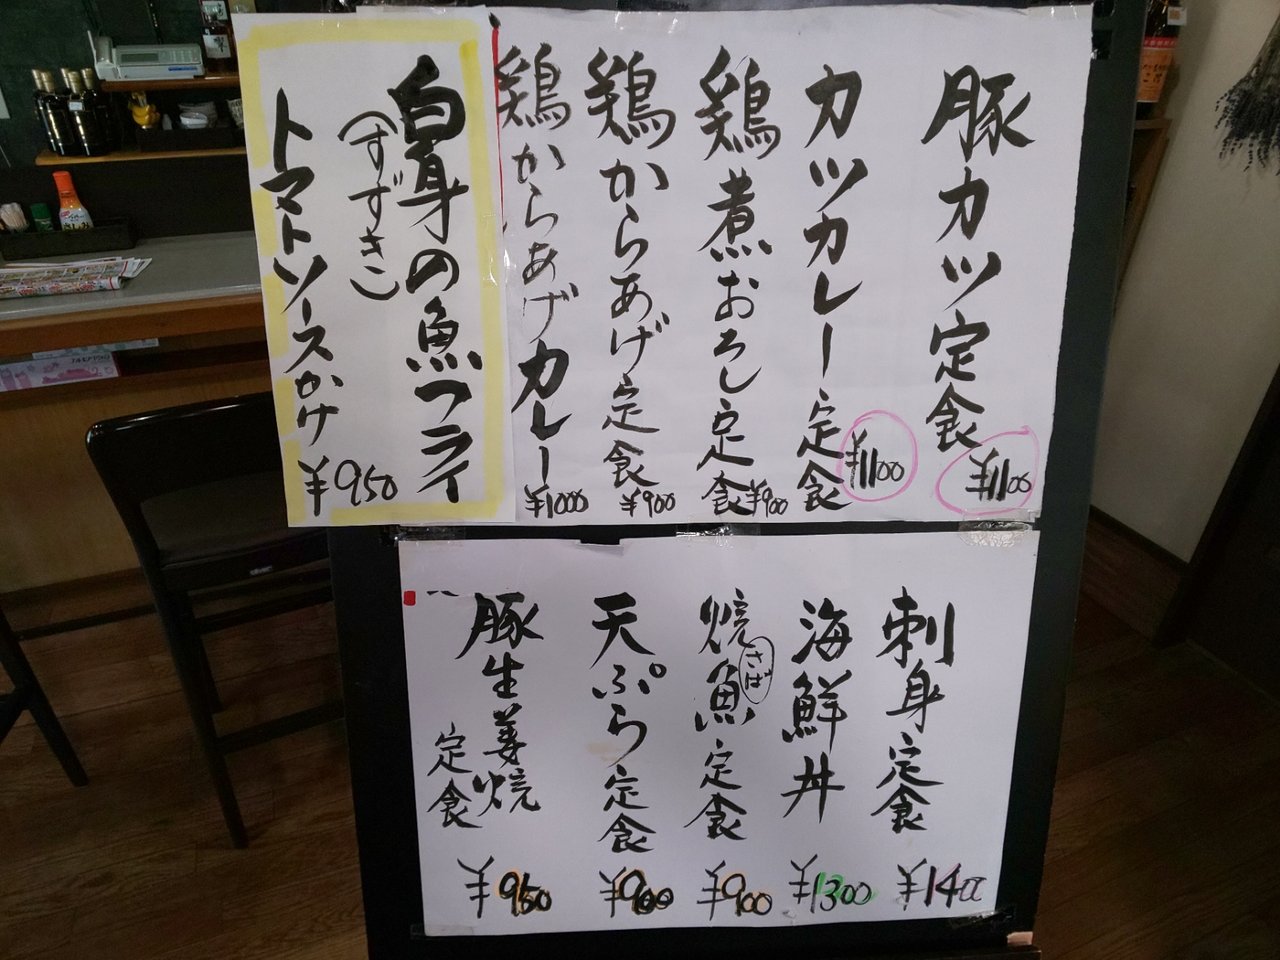 豚カツ定食 ¥1100
カツカレー定食 ¥1100
鶏煮おろし定食 ¥900
鶏からあげ定食 ¥900
鶏からあげカレー ¥1000
白身の魚フライ
(すずき)
トマトソースかけ ¥950
刺身定食 ¥1400
海鮮丼 ¥1300
焼魚定食 ¥900
さば
天ぷら定食 ¥900
豚生姜焼
定食 ¥950